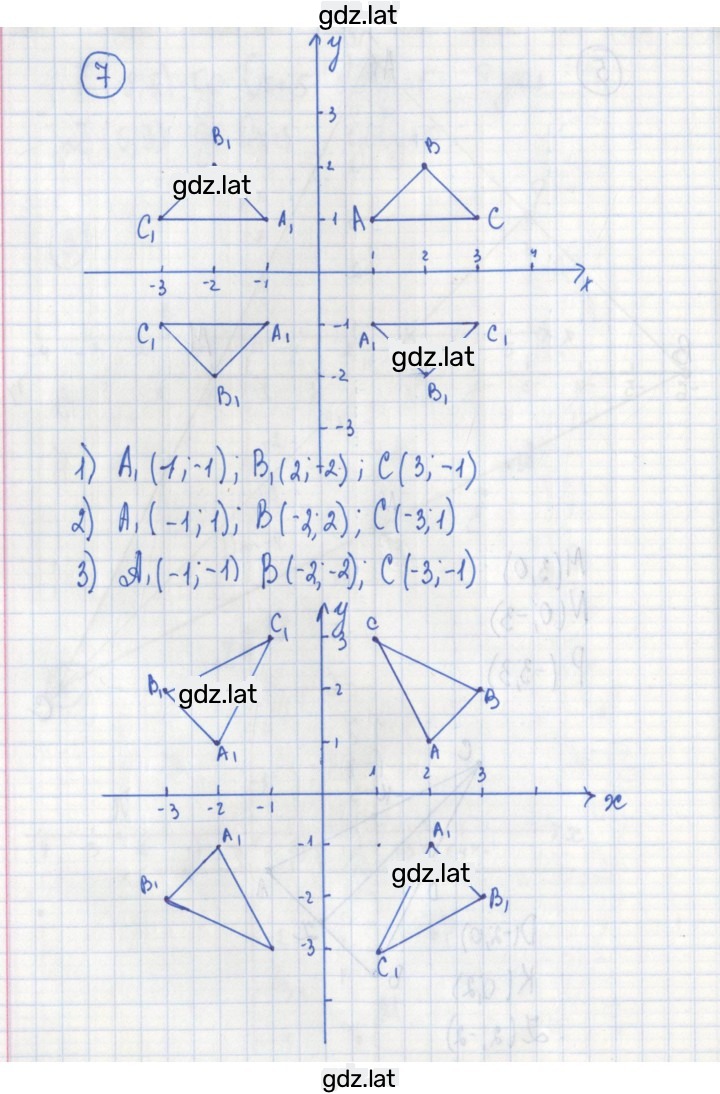 gdz.lat
7
y
3
B₁ 2 B
gdz.lat
C₁ A₁ 1 A C
1 2 3 4
-3 -2 -1 x
C₁ A₁ -1 A₁ C₁
gdz.lat
B₁ -2 B₁
-3
1) A₁ (1; -1); B₁ (2; -2); C (3; -1)
2) A₁ (-1; 1); B (-2; 2); C (-3; 1)
3) A₁ (-1; -1) B (-2; -2); C (-3; -1)
y
C₁ 3 C
B₁ gdz.lat 2 B
A₁ 1 A
1 2 3
-3 -2 -1 x
A₁ -1 A₁
B₁ gdz.lat
-2 B₁
-3 C₁
gdz.lat